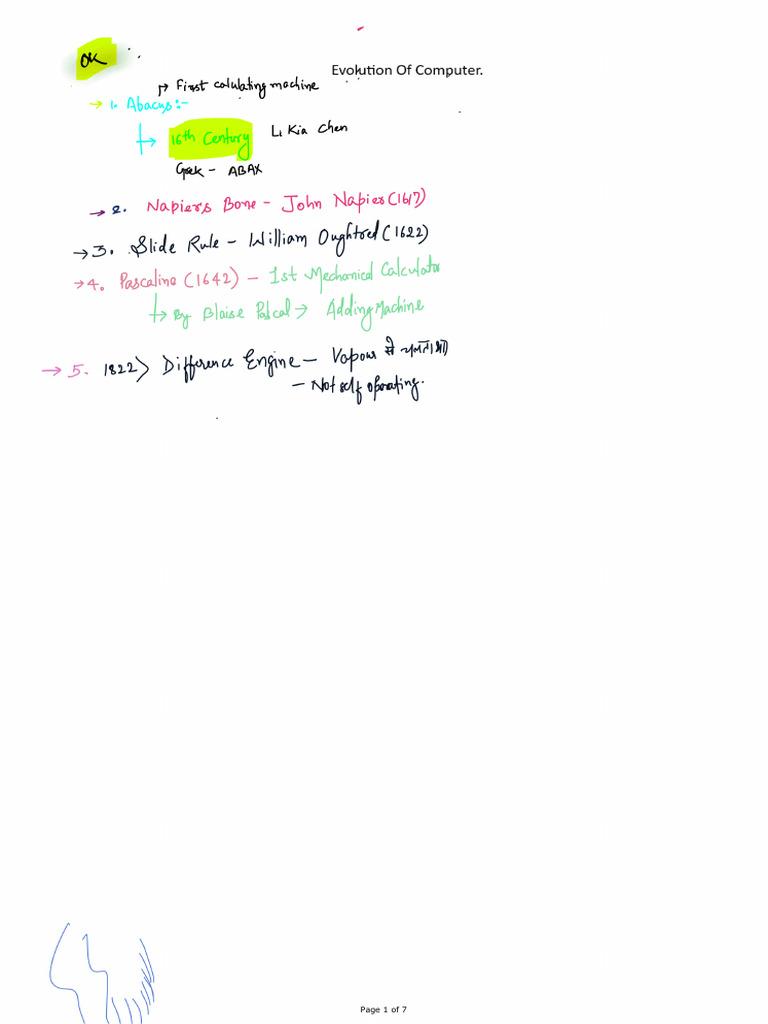 OK
Evolution Of Computer.
↱ First calulating machine
→ 1. Abacus:-
↳ 16th Century Li Kia Chen
Greek - ABAX
→ 2. Napiers Bone - John Napier (1617)
→ 3. Slide Rule - William Oughtred (1622)
→ 4. Pascaline (1642) - 1st Mechanical Calculator
↳ By Blaise Pascal → Adding Machine
→ 5. 1822> Difference Engine - Vapour से चलता था
- Not self operating.
Page 1 of 7